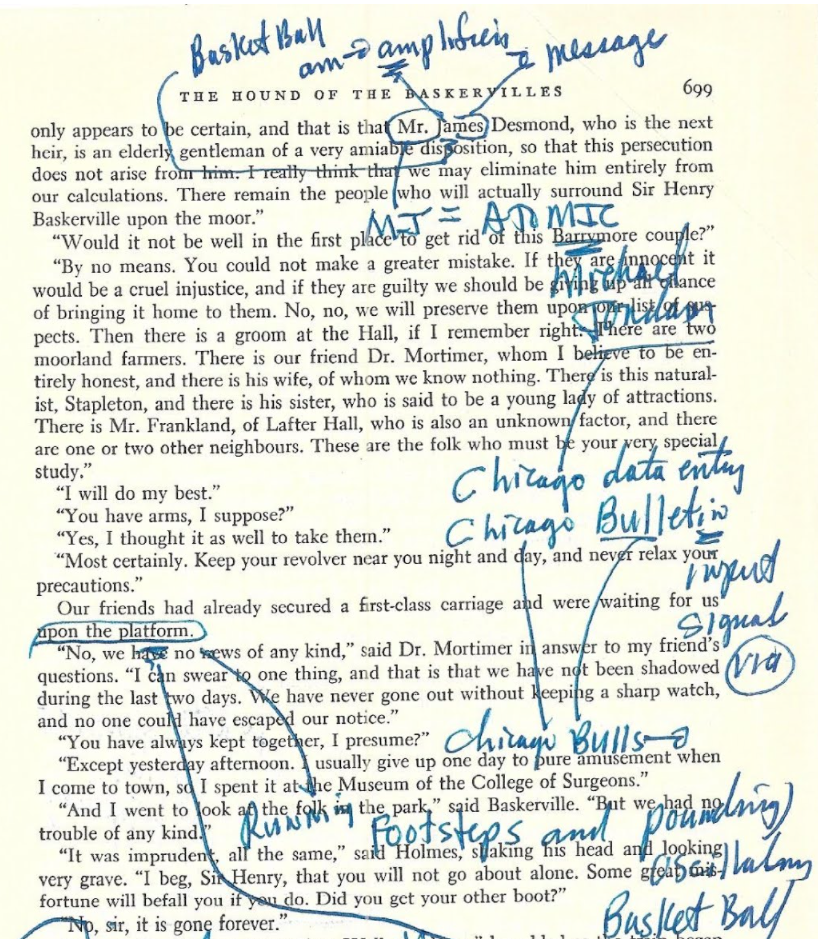 BasketBall
am → amplifiers → message
THE HOUND OF THE BASKERVILLES 699
only appears to be certain, and that is that Mr. James Desmond, who is the next
heir, is an elderly gentleman of a very amiable disposition, so that this persecution
does not arise from him. I really think that we may eliminate him entirely from
our calculations. There remain the people who will actually surround Sir Henry
Baskerville upon the moor.”
MJ =
“Would it not be well in the first place to get rid of this Barrymore couple?”
“By no means. You could not make a greater mistake. If they are innocent it
Michael
would be a cruel injustice, and if they are guilty we should be giving up all chance
of bringing it home to them. No, no, we will preserve them upon our list of sus-
Jordan
pects. Then there is a groom at the Hall, if I remember right. There are two
moorland farmers. There is our friend Dr. Mortimer, whom I believe to be en-
tirely honest, and there is his wife, of whom we know nothing. There is this natural-
ist, Stapleton, and there is his sister, who is said to be a young lady of attractions.
There is Mr. Frankland, of Lafter Hall, who is also an unknown factor, and there
are one or two other neighbours. These are the folk who must be your very special
study.”
Chicago data entry
“I will do my best.”
“You have arms, I suppose?”
Chicago Bulletin
“Yes, I thought it as well to take them.”
“Most certainly. Keep your revolver near you night and day, and never relax your
input
precautions.”
Our friends had already secured a first-class carriage and were waiting for us
signal
upon the platform.
“No, we have no news of any kind,” said Dr. Mortimer in answer to my friend’s
via
questions. “I can swear to one thing, and that is that we have not been shadowed
during the last two days. We have never gone out without keeping a sharp watch,
and no one could have escaped our notice.”
“You have always kept together, I presume?”
Chicago Bulls →
“Except yesterday afternoon. I usually give up one day to pure amusement when
I come to town, so I spent it at the Museum of the College of Surgeons.”
“And I went to look at the folk in the park,” said Baskerville. “But we had no
Running Footsteps and pounding
trouble of any kind.”
“It was imprudent, all the same,” said Holmes, shaking his head and looking
very grave. “I beg, Sir Henry, that you will not go about alone. Some great mis-
oscillating
fortune will befall you if you do. Did you get your other boot?”
BasketBall
“No, sir, it is gone forever.”